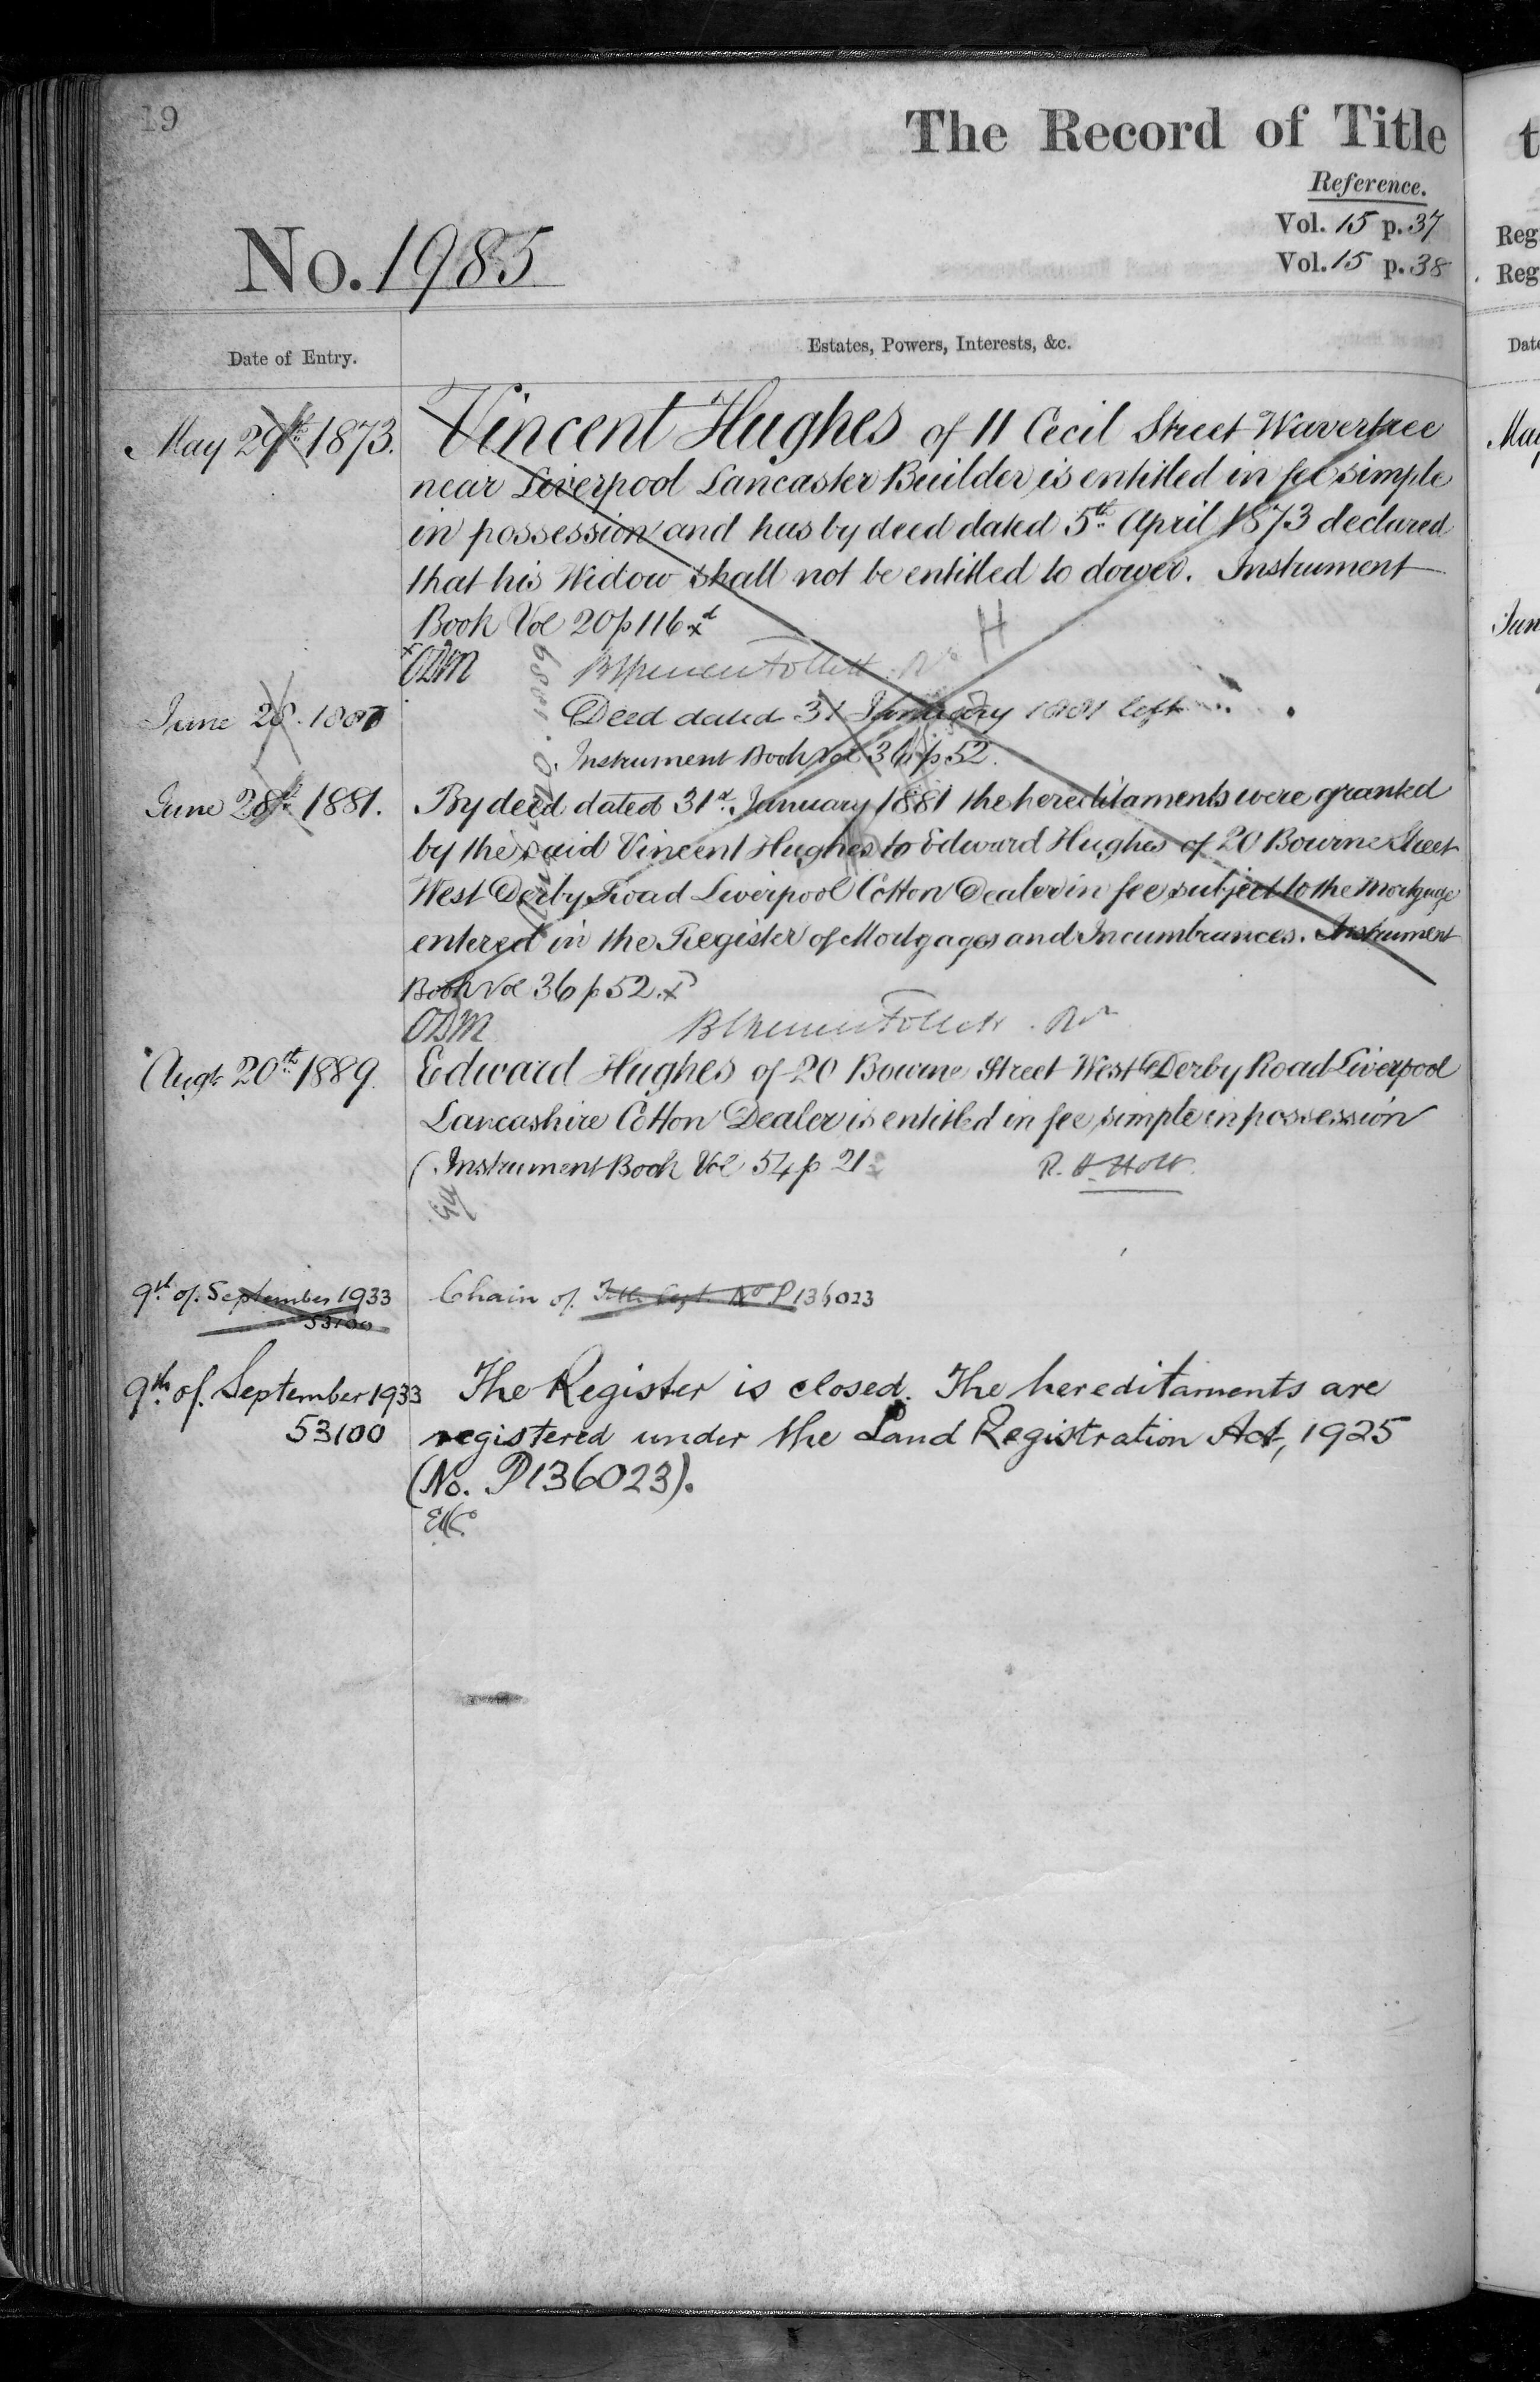 19
The Record of Title
Reference.
Vol. 15 p. 37
Vol. 15 p. 38
No. 1985
Date of Entry.
Estates, Powers, Interests, &c.
May 29th 1873.
Vincent Hughes of 11 Cecil Street Wavertree
near Liverpool Lancaster Builder is entitled in fee simple
in possession and has by deed dated 5th April 1873 declared
that his Widow shall not be entitled to dower. Instrument
Book Vol 20 p 116
ODM
H
June 28. 1881
Deed dated 31 January 1881 left
Instrument Book Vol 36 p 52.
June 28th 1881.
By deed dated 31st January 1881 the hereditaments were granted
by the said Vincent Hughes to Edward Hughes of 20 Bourne Street
West Derby Road Liverpool Cotton Dealer in fee subject to the Mortgage
entered in the Register of Mortgages and Incumbrances. Instrument
Book Vol 36 p 52
ODM
Augt 20th 1889.
Edward Hughes of 20 Bourne Street West Derby Road Liverpool
Lancashire Cotton Dealer is entitled in fee simple in possession
(Instrument Book Vol 54 p 21
R. H. Holt
9th of September 1933
53100
Chain of Title No P136023
9th of September 1933
53100
The Register is closed. The hereditaments are
registered under the Land Registration Act, 1925
(No. P136023).
t
Reg
Reg
Date
May
Jun